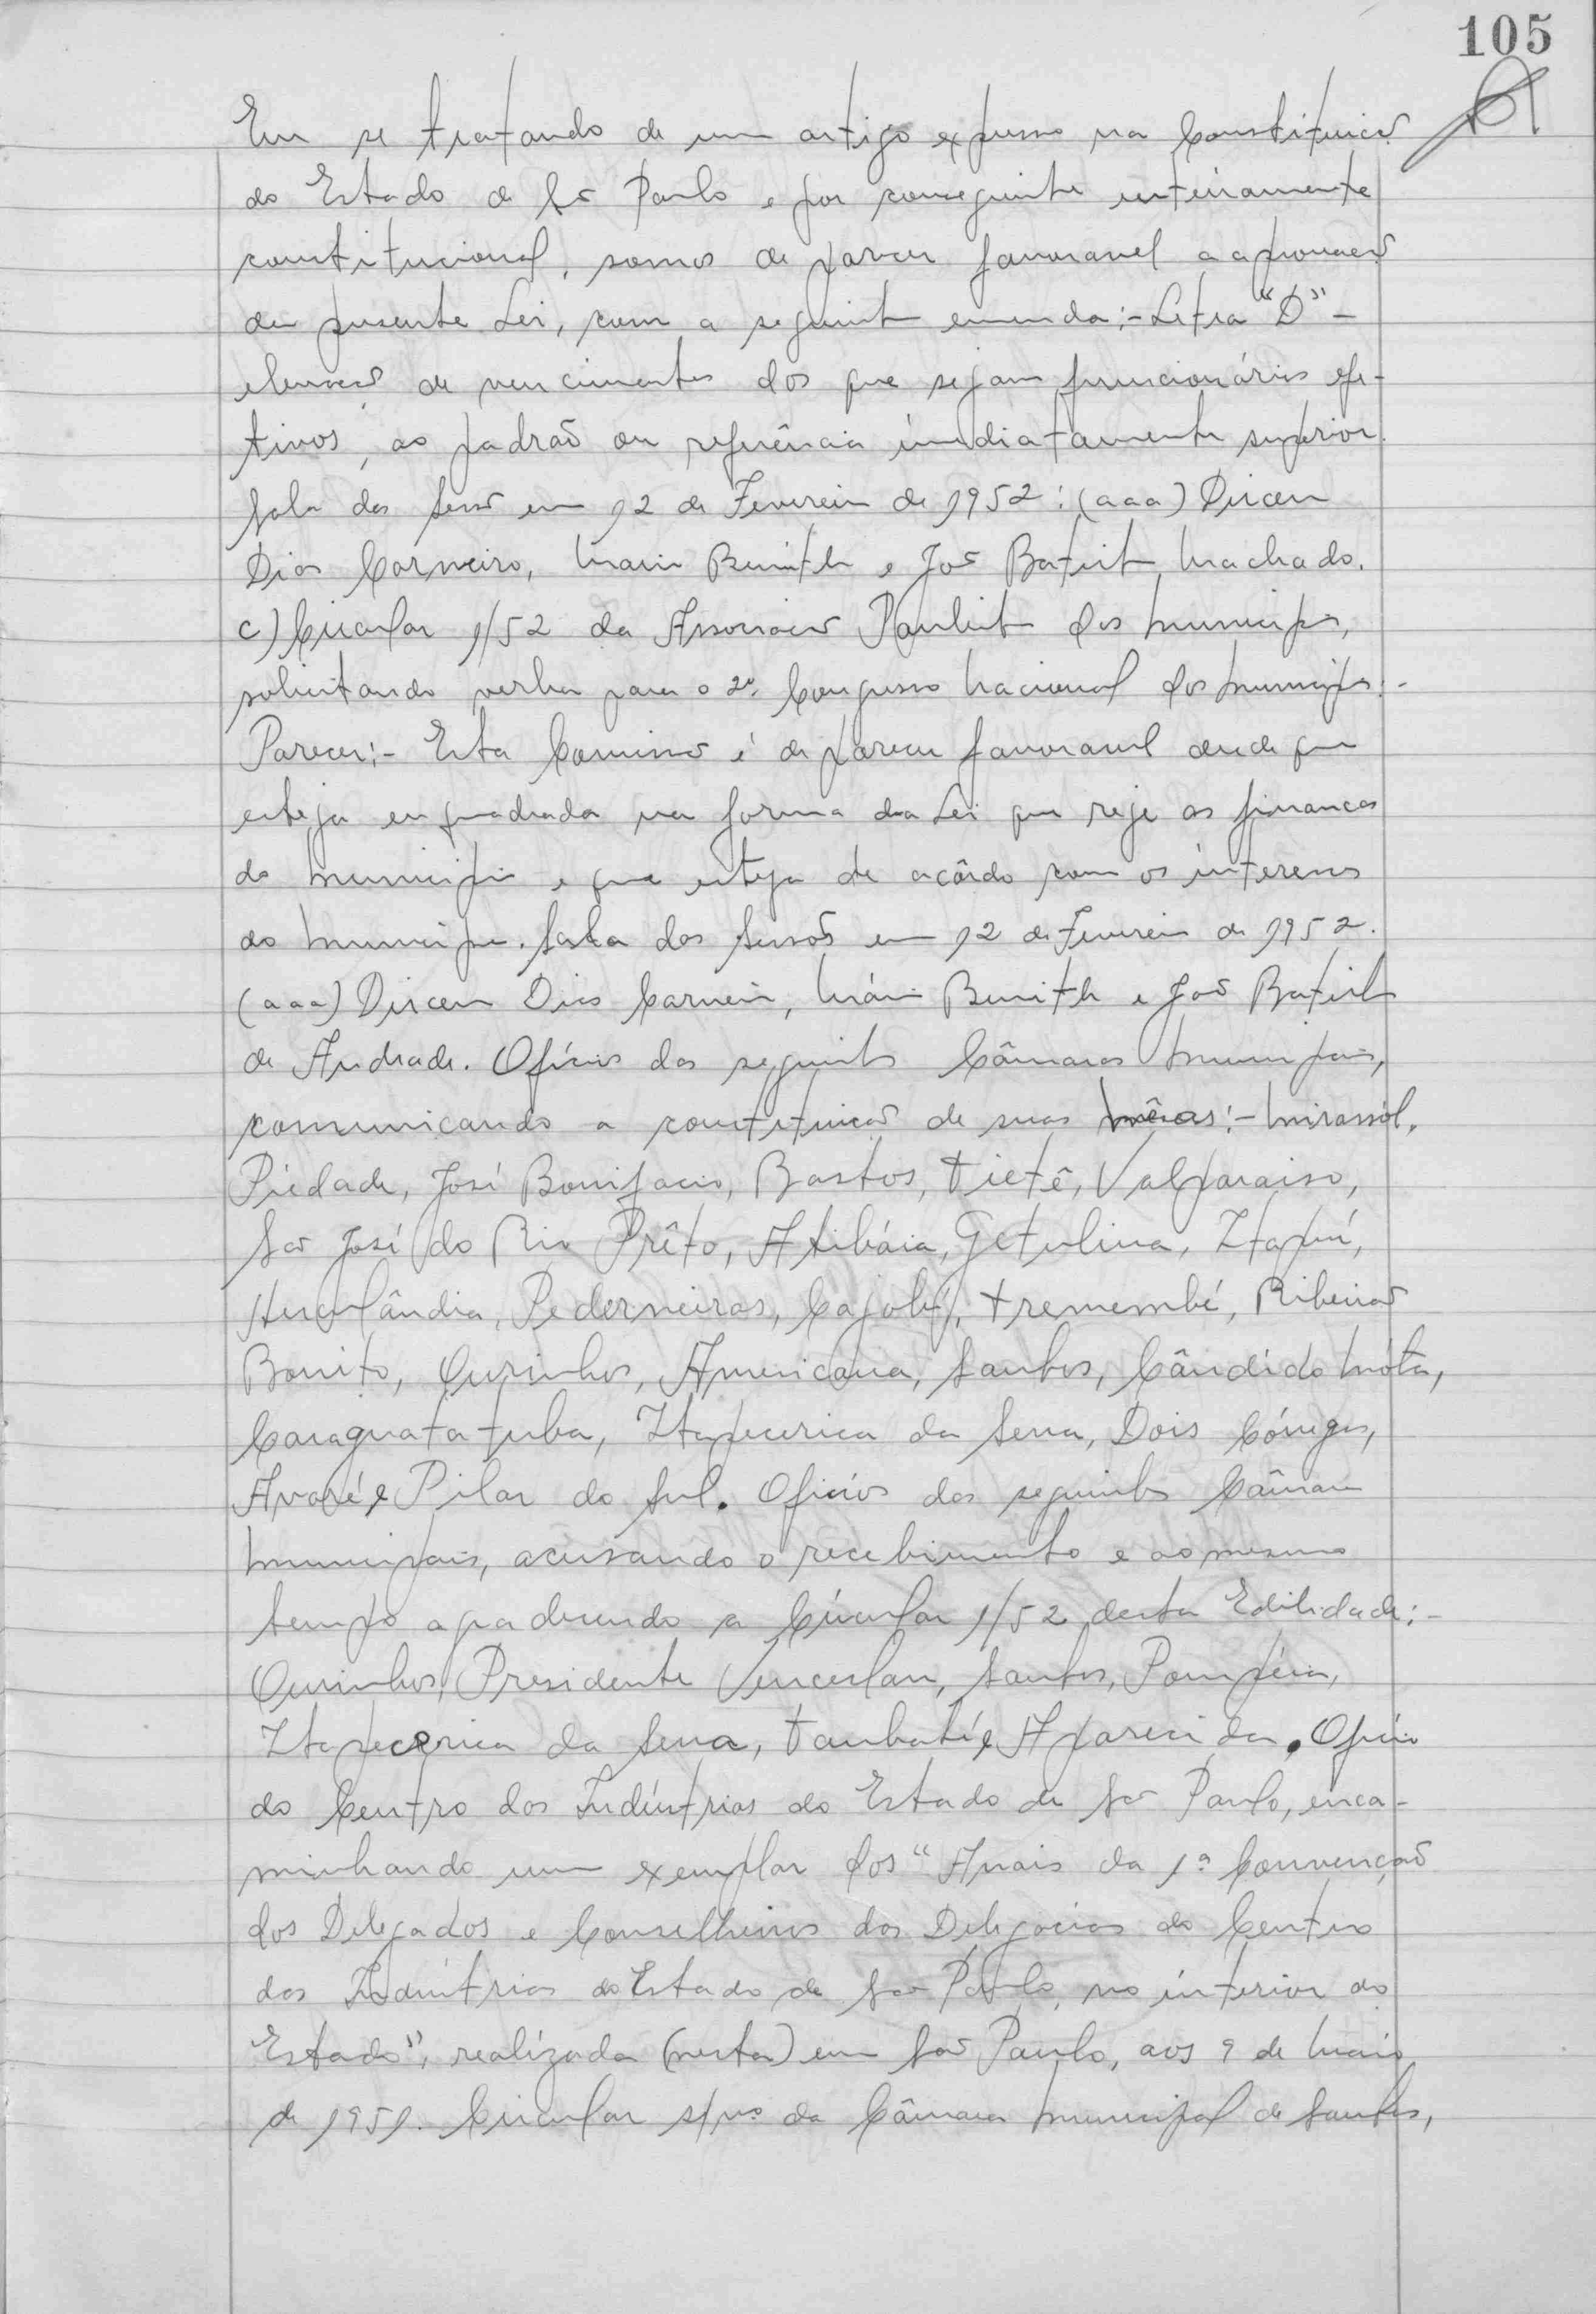 105
Em se tratando de um artigo expresso na Constituição
do Estado de São Paulo e por conseguinte inteiramente
constitucional, somos de parecer favoravel a aprovação
da presente Lei, com a seguinte emenda:- Letra "D" -
elevação de vencimentos dos que sejam funcionários efe-
tivos, ao padrão ou referência imediatamente superior.
Sala das Sessões em 12 de Fevereiro de 1952: (aaa) Dirceu
Dias Carneiro, Mario Benith e João Batista Machado.
c) Circular 1/52 da Associação Paulista dos Municipios,
solicitando verba para o 2º. Congresso Nacional dos Municipios:-
Parecer:- Esta Comissão é de parecer favoravel desde que
esteja enquadrada na forma da Lei que reje as finanças
do Municipio e que esteja de acôrdo com os interesses
do Municipio. Sala das Sessões em 12 de Fevereiro de 1952.
(aaa) Dirceu Dias Carneiro, Mário Benith e João Batista
de Andrade. Ofícios das seguintes Câmaras Municipais,
comunicando a constituição de suas Mêsas:- Mirassól,
Piedade, José Bonifacio, Bastos, Tietê, Valparaiso,
São José do Rio Prêto, Atibáia, Getulina, Itapuí,
Herculândia, Pederneiras, Cajobí, Tremembé, Ribeirão
Bonito, Ourinhos, Americana, Santos, Cândido Móta,
Caraguatatuba, Itapecerica da Serra, Dois Córregos,
Avaré e Pilar do Sul. Ofícios das seguintes Câmaras
Municipais, acusando o recebimento e ao mesmo
tempo agradecendo a Circular 1/52 desta Edilidade:-
Ourinhos, Presidente Venceslau, Santos, Pompéia,
Itapecerica da Serra, Taubaté e Aparecida. Ofício
do Centro das Indústrias do Estado de São Paulo, enca-
minhando um exemplar dos "Anais da 1ª Convenção
dos Delegados e Conselheiros das Delegacias do Centro
das Indústrias do Estado de São Paulo, no interior do
Estado", realizada (nesta) em São Paulo, aos 9 de Maio
de 1951. Circular s/nº da Câmara Municipal de Santos,